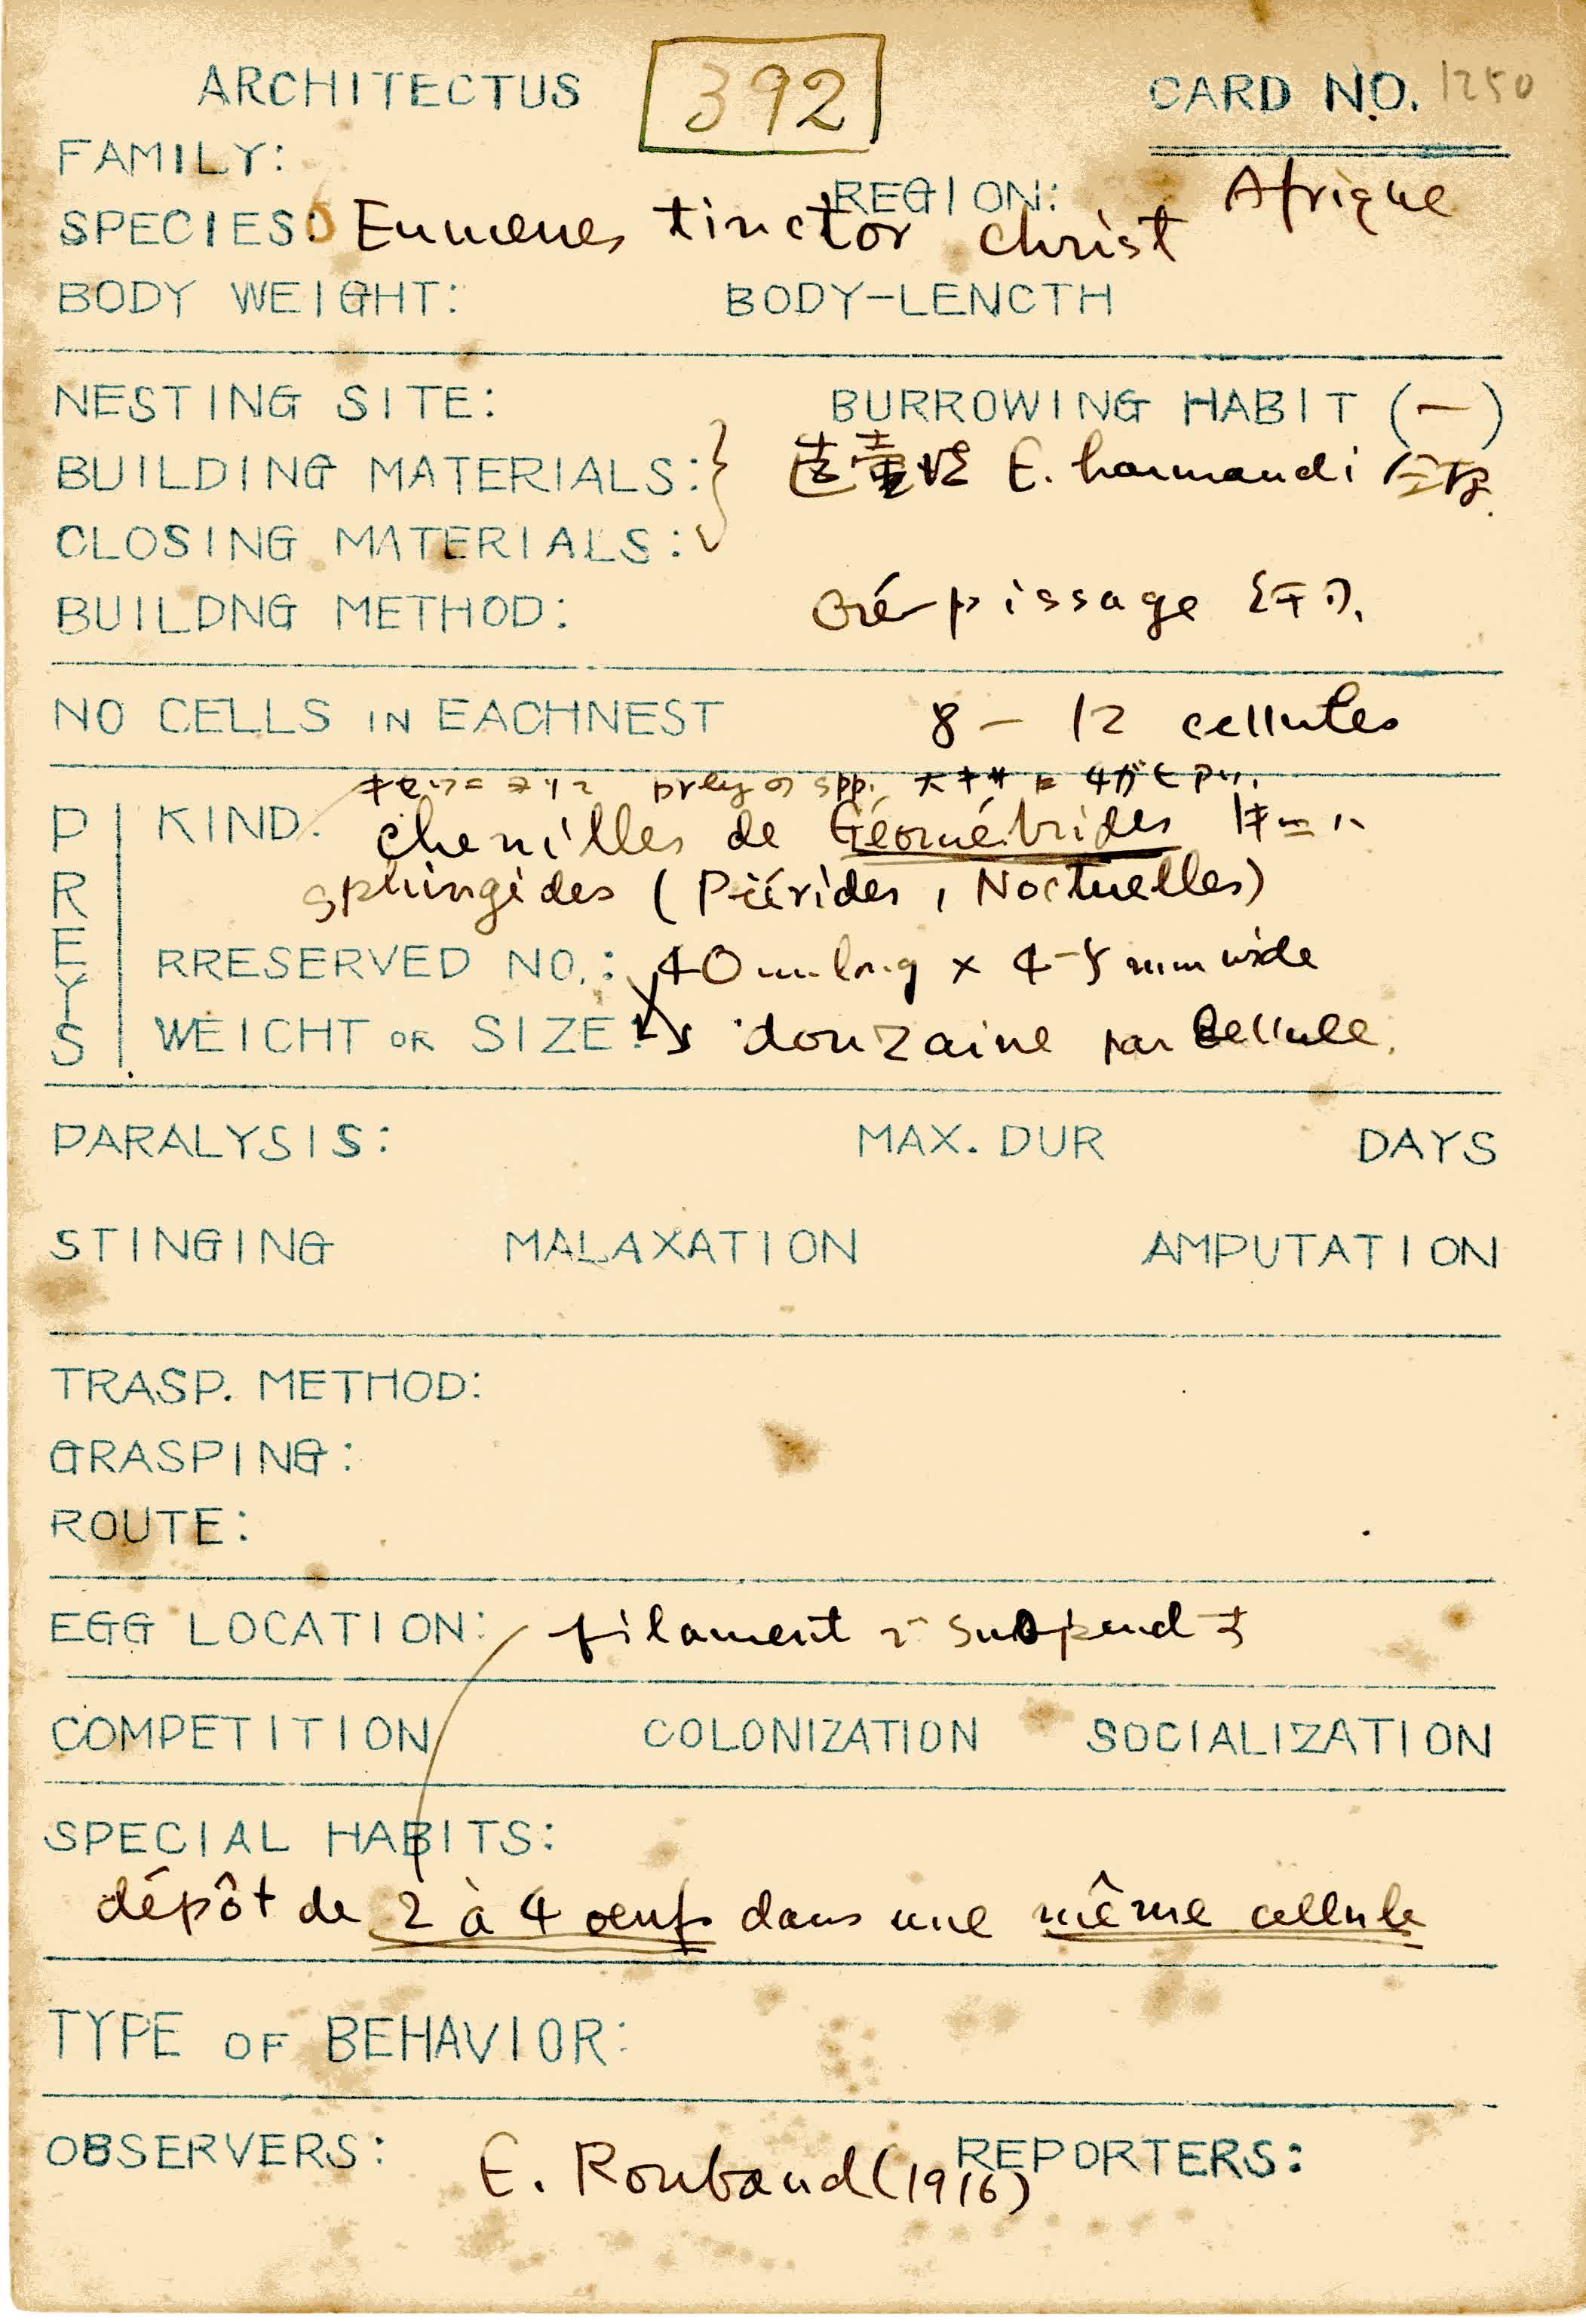 ARCHITECTUS 392 CARD NO. 1250
FAMILY:
REGION: Afrique
SPECIES: Eumenes tinctor Christ
BODY WEIGHT: BODY-LENCTH
NESTING SITE: BURROWING HABIT (-)
BUILDING MATERIALS: 造壷 E. harmandi
CLOSING MATERIALS:
BUILDNG METHOD: crépissage
NO CELLS IN EACHNEST 8 - 12 cellules
prey の spp.
PREYS
KIND. chenilles de Géométrides
sphingides (Piérides, Noctuelles)
RRESERVED NO.: 40 mm long x 4-5 mm wide
WEICHT OR SIZE: douzaine par cellule.
PARALYSIS: MAX. DUR DAYS
STINGING MALAXATION AMPUTATION
TRASP. METHOD:
GRASPING:
ROUTE:
EGG LOCATION: filament で suspend す
COMPETITION COLONIZATION SOCIALIZATION
SPECIAL HABITS:
dépôt de 2 à 4 oeufs dans une même cellule
TYPE OF BEHAVIOR:
OBSERVERS: E. Roubaud (1916) REPORTERS: